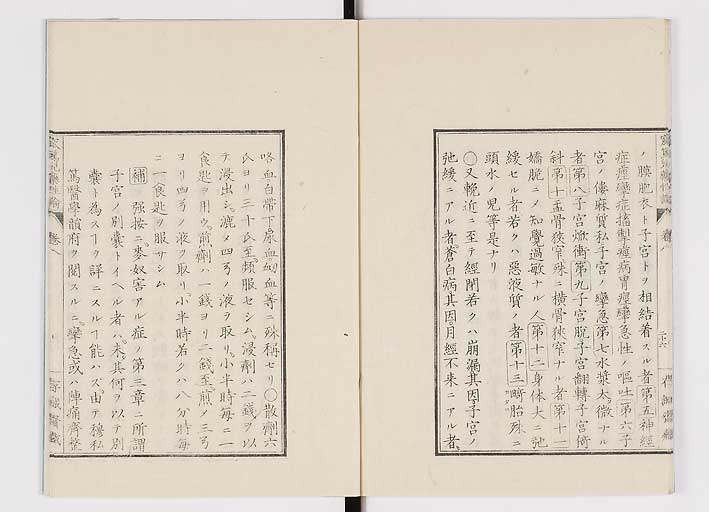 ノ膜胞衣ト子宮トヲ相結着スル者第五神經
症痙攣症搐搦癲癇胃痙攣急性ノ嘔吐第六子
宮ノ僂麻質私子宮ノ攣急第七水漿太微ナル
者第八子宮焮衝第九子宮脫子宮翻轉子宮
斜第十盂骨狹窄殊ニ橫骨狹窄ナル者第十一
嬌脆ニメ知覺過敏ナル人第十二身体大ニ弛
緩セル者若クハ惡液質ノ者第十三畸胎殊ニ
頭水ノ児等是ナリ
○又輓近ニ至テ經閉若クハ崩漏其因子宮ノ
弛緩ニアル者蒼白病其因月經不来ニアル者
咯血白帯下尿血衂血等ニ殊稱セリ○散劑六
氏ヨリ三十氏至頻服セシム浸劑ハ二錢ヲ以
テ浸出シ漉メ四弓ノ液ヲ取リ小半時每ニ一
食匙ヲ用ウ煎劑ハ一錢ヨリ二錢至煎メ三弓
ヨリ四弓ノ液ヲ取リ小半時若クハ八分時每
ニ一食匙ヲ服サシム
補 强按ニ麥奴害アル症ノ第三章ニ所謂
子宮ノ別囊トイヘル者ハ未其何ヲ以テ別
囊ト為スヿヲ詳ニスルヿ能ハズ由テ穆私
篤醫學韻府ヲ閱スルニ攣急或ハ陣痛齊整